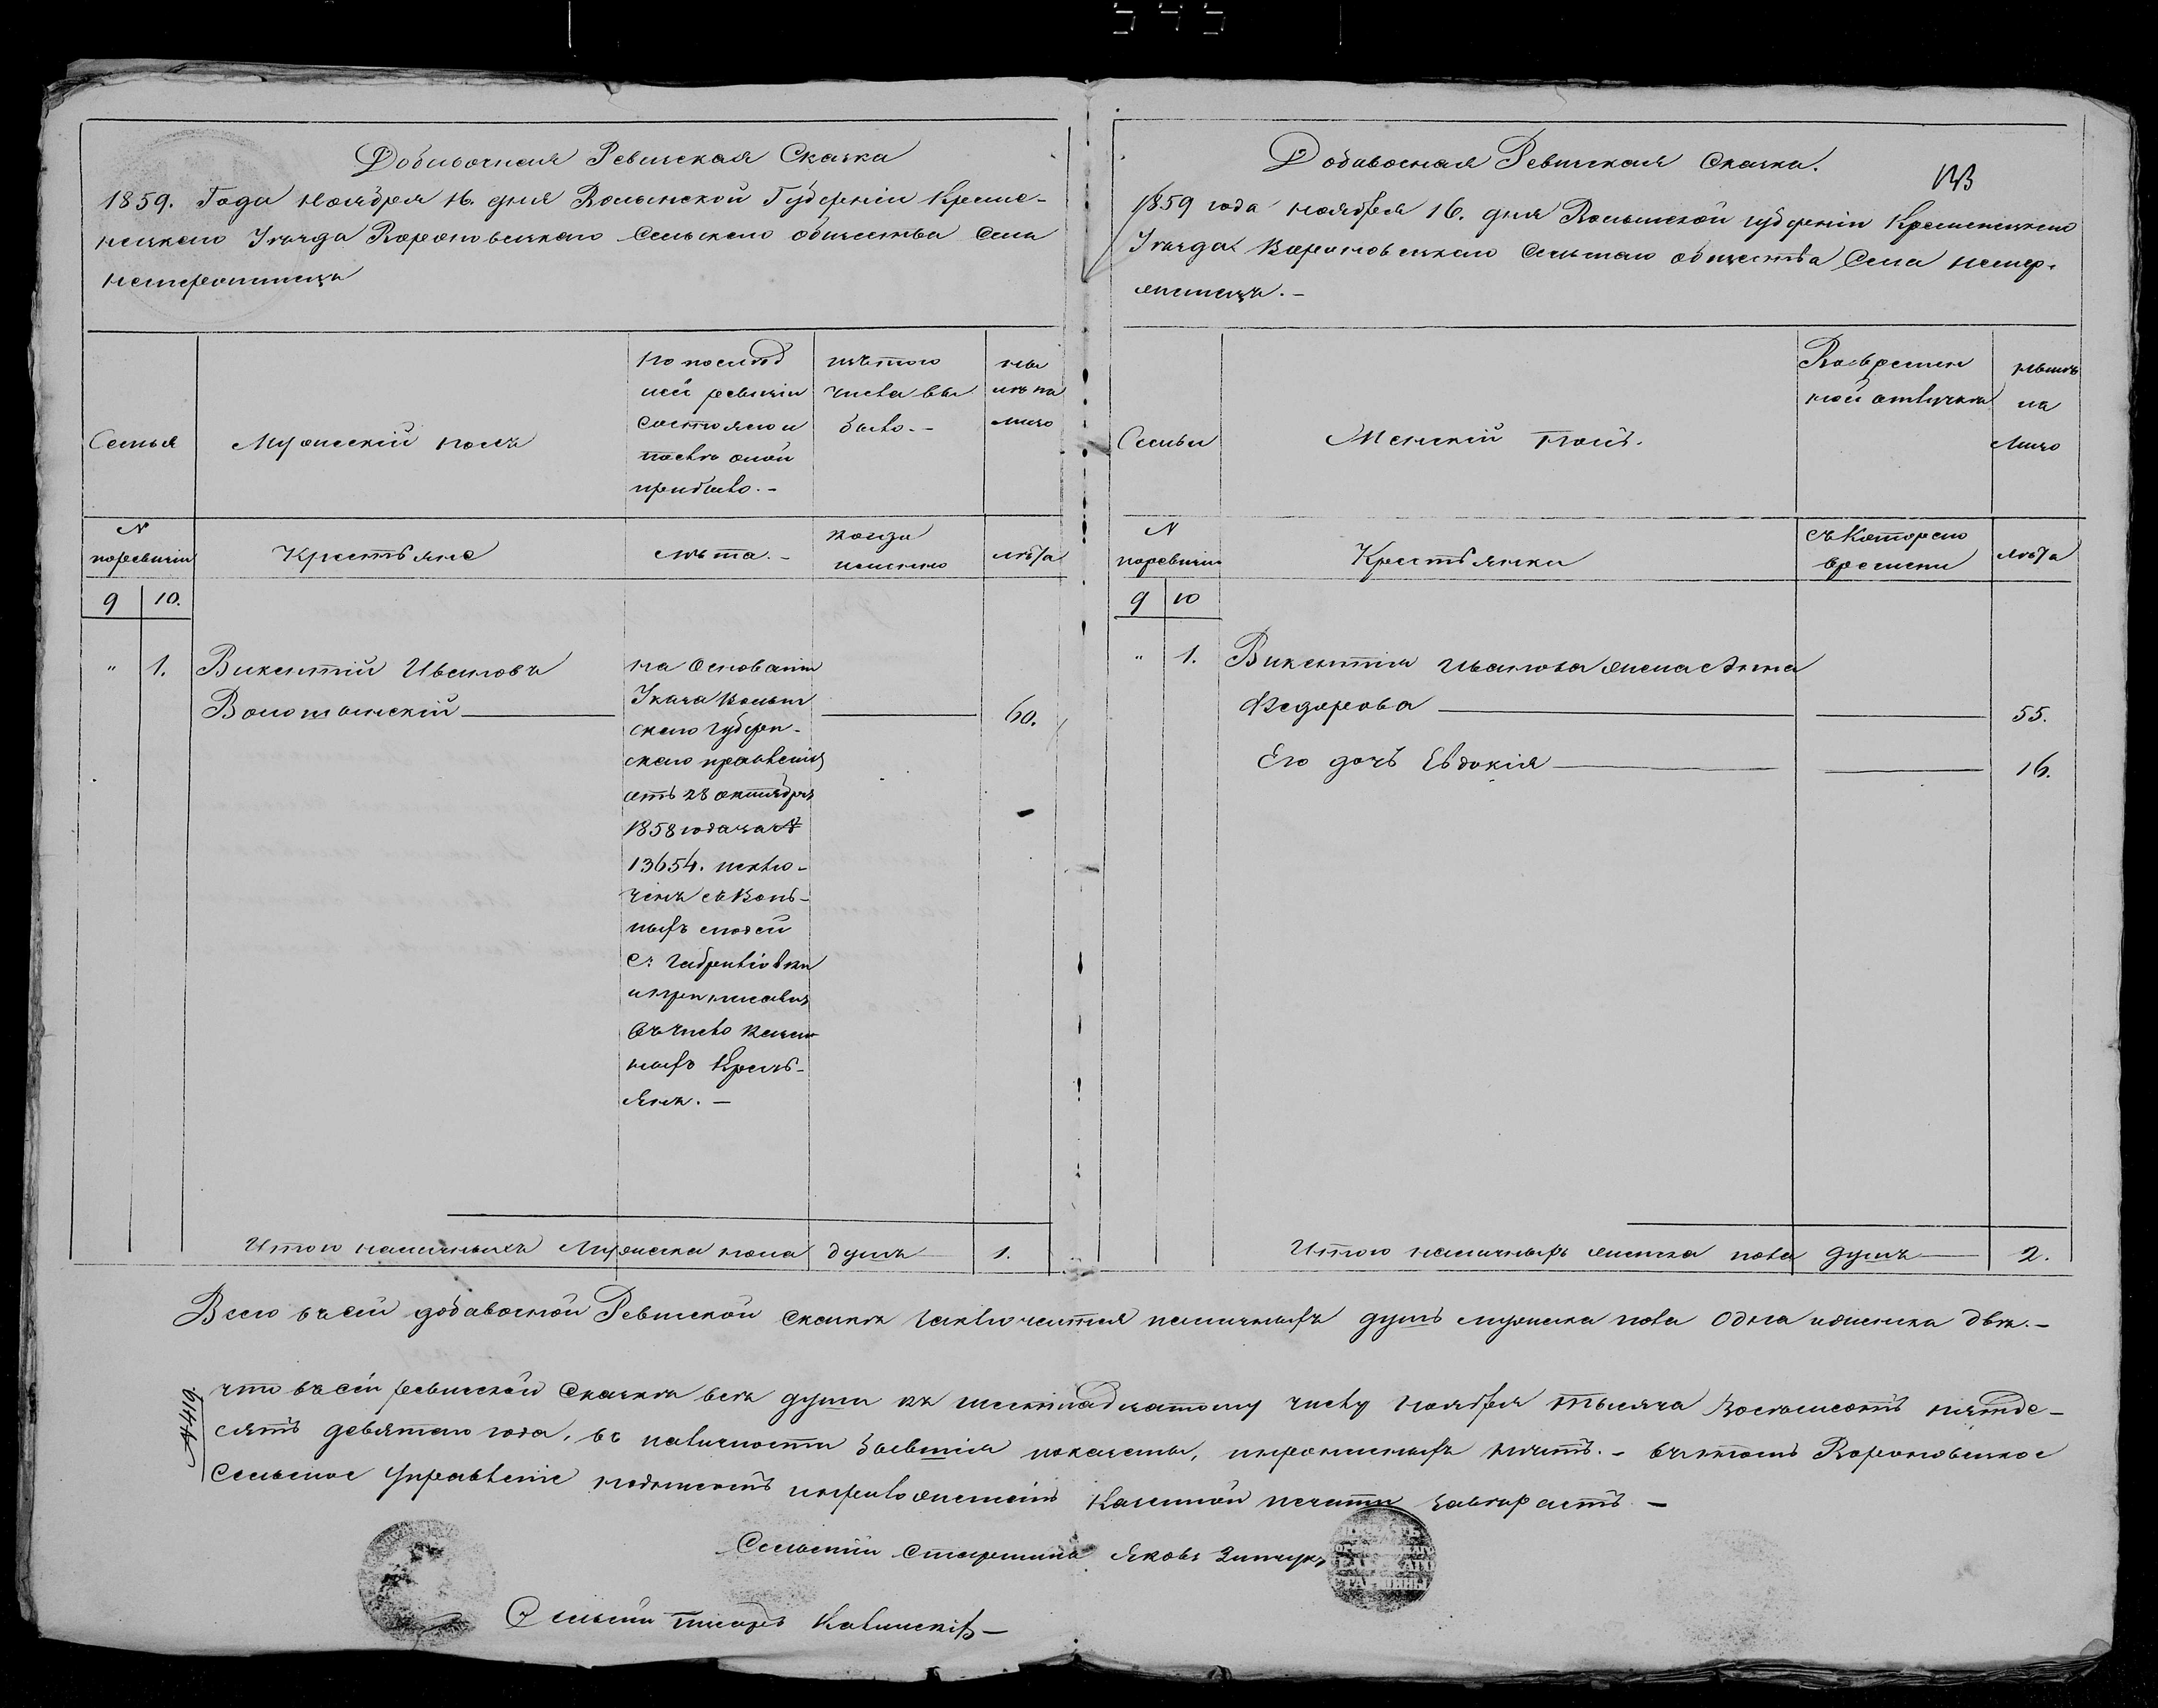 545
Добавочная Ревизская Сказка
1859. Года Ноября 16. дня Волынской Губерніи Креме-
нецкаго Уѣзда Вороновецкаго Сельскаго общества Села
Семья
Мужескій полъ
по послѣд
ней ревизіи
состояло и
послѣ оной
прибыло. -
изъ того
числа вы
было. -
ны
нѣ на
лицо
N
поревизіи
Крестьяне
лѣта. -
когда
именно
лѣта
9 10.
" 1. Викентій Ивановъ
Волошинскій 60.
на Основаніи
Указа Волын
скаго Губерн-
скаго правленія
отъ 28 октября
1858 года за №
13654. исклю-
ченъ съ Воль-
ныхъ людей
с: Габріеліовки
и приписанъ
въ число Казен
ныхъ Кресть-
янъ. -
Итого наличныхъ Мужеска пола душъ 1.
Добавочная Ревизская Сказка.
1859 года ноября 16. дня Волынской губерніи Кременецкаго
Уѣзда Вороновецкаго Сельскаго общества Села
Семьи
Женскій полъ.
Во времен
ной отлучкѣ
нынѣ
на
лицо
N
поревизіи
Крестьянки
съ Котораго
времени
лѣта
9 10
" 1. Викентія Иванова жена Анна
Федорова 55.
Его дочь Евдокія 16.
Итого наличныхъ женска пола душъ 2.
Всего въ сей добавочной Ревизской сказкѣ заключается наличныхъ душъ мужеска пола Одна и женска двѣ. -
что въ сей ревизской Сказкѣ всѣ души къ шестнадцатому числу Ноября тысяча восемьсотъ пятьде-
сятъ девятаго года, въ наличности бывшія показаны, и прописныхъ нѣтъ. - въ томъ Вороновецкое
Сельское Управленіе подписомъ и приложеніемъ Казенной печати завѣряетъ -
№4419
Сельскій Старшина Яковъ
Сельскій писарь Калинскій